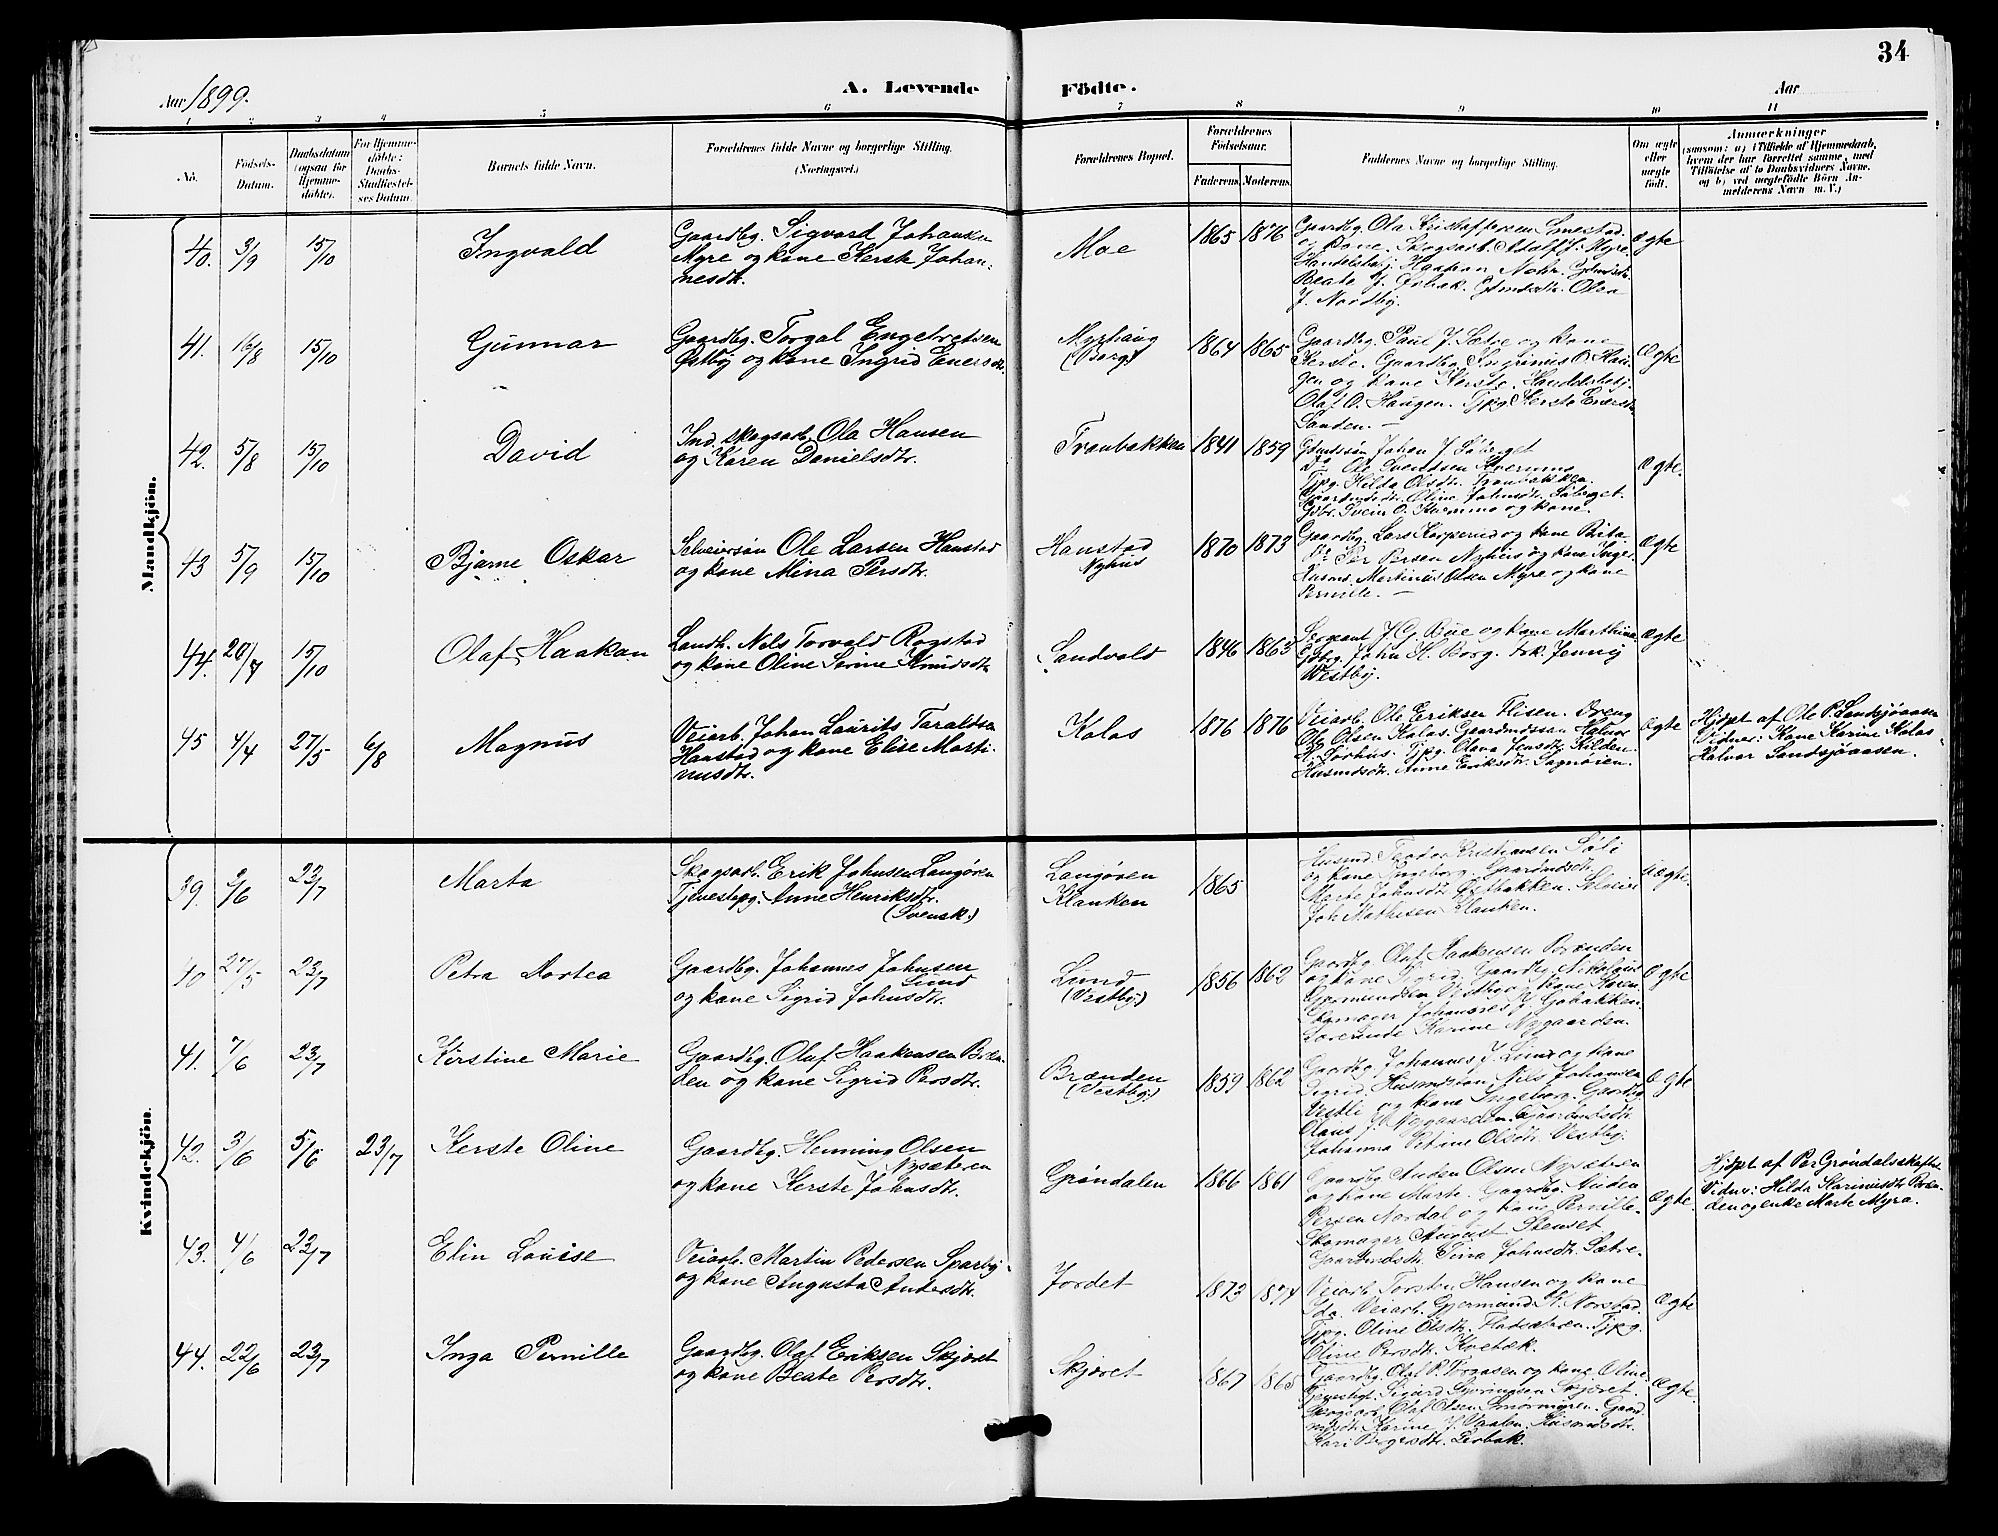 34
Aar 1899.
A. Levende Födte.
Aar
1 2 3 4 5 6 7 8 9 10 11
No.
Födsels-
Datum.
Daabsdatum
(ogsaa for
Hjemme-
döbte).
For Hjemme-
döbte:
Daabs-
Stadfæstel-
ses Datum.
Barnets fulde Navn.
Forældrenes fulde Navne og borgerlige Stilling.
(Næringsvei.)
Forældrenes Bopæl.
Forældrenes
Födselsaar.
Faderens. Moderens.
Faddernes Navne og borgerlige Stilling.
Om ægte
eller
uægte
födt.
Anmærkninger
(saasom: a) i Tilfælde af Hjemmedaab,
hvem der har forrettet samme, med
Tilföielse af to Daabsvidners Navne,
og b) ved uægtefödte Börn An-
melderens Navn m. V.)
Mandkjön.
40. 3/9 15/10
Ingvald
Gaardbg. Sigvard Johansen
Myre og kone Kerste Johan-
nesdtr.
Moe
1865 1876
Gaardbg. Ola Kristoffersen Smestad
og Kone. Skogsarb. Adolf J. Myre
Handelsbetj. Haakon
Beate J.
J. Nordby.
ægte
41. 16/8 15/10
Gunnar
Gaardbg. Torgal Engebretsen
Østby og kone Ingrid Enersdtr.
Myrhaug
(Borg)
1864 1865
Gaardbg. Paul J. Sætre og kone
Kerste. Gaardbg. Severinus O. Hau-
gen og kone Kerste. Handelsbetj.
Olaf O. Haugen. Tjpg. Kerste Enersdtr.
Sanden. —
ægte
42. 5/8 15/10
David
Ind. skogsarb. Ola Hansen
og Karen Danielsdtr.
Tranbakken
1841 1859
Gdmdssøn Johan J. Søberget
do Ole Svendsen Kvermmo
Tjpg. Hilda Olsdtr. Tranbakken.
Gaardmdsdtr. Oline Johnsdtr. Søberget.
Gdbr. Svein O. Kvermmo og kone.
ægte.
43 5/9 15/10
Bjarne Oskar
Selveiersøn Ole Larsen Hanstad
og kone Mina Persdtr.
Hanstad
Nyhus
1870 1873
Gaardbg. Lars Korperud og kone Berta
do Per Persen Nyhus og kone Inger
Husmd. Martinus Olsen Myre og kone
Pernille. —
ægte
44. 20/7 15/10
Olaf Haakon
Landh. Nils Torvald Rogstad
og kone Oline Serine Knudsdtr.
Sandvold
1846 1863
Sergeant J. G. Bue og kone Marthina
Gdbg. John H. Borg. frk. Jenny
Westby.
ægte
45 4/4 27/5 6/8
Magnus
Veiarb. Johan Laurits Taraldsen
Hanstad og kone Elise Marti-
nusdtr.
Kolos
1876 1876
Veiarb. Ole Eriksen Flisen. Dreng
Ole Olsen Kolos. Gaardmdssøn Halvor
H. Dorhus. Tjpg. Olava Jensdtr. Kilden.
Husmdsdtr. Anne Eriksdtr. Sagmoien.
ægte
Hjdpt af Ole P. Landsjøaasen
Vidner: Kone Karine Kolos
Halvor Landsjøaasen.
Kvindekjön.
39. 2/6 23/7
Marta
Skogsarb. Erik Johnsen Langøren
Tjenestepg. Anne Henriksdtr.
(Svensk.)
Langøren
Klanken
1865
Husmd. Teodor Kristiansen
og kone Ingeborg. Gaardmdsdtr.
Marte Johnsdtr. Østbakken. Selveier
Joh. Mathisen Klanken.
uægte.
40 27/5 23/7
Petra Dortea
Gaardbg. Johannes Johnsen
Lund
og kone Sigrid Johnsdtr.
Lund
(Vestby)
1856 1862
Gaardbg. Olaf Haakensen Brænden
og kone Sigrid. Gaardbg. Nikolaus
Gjermundsen Vestby og kone Karen
Skomager Johannes J. Gobakken.
Logerende Karine Nygaarden.
ægte
41. 7/6 23/7
Kirstine Marie
Gaardbg. Olaf Haakensen Bræn-
den og kone Sigrid Persdtr.
Brænden
(Vestby)
1859 1862
Gaardbg. Johannes J. Lund og kone
Sigrid. Husmdssøn Nils Johansen
Vestli og kone Ingeborg. Gaardbg.
Olaus J. Nygaarden. Gaardmdsdtr.
Johanna Petrine Olsdtr. Vestby.
ægte
42. 3/6 5/6 23/7
Kerste Oline
Gaardbg. Henning Olsen
Nysæteren
og kone Kerste Johnsdtr.
Grøndalen
1866 1861
Gaardbg. Anden Olsen Nysæteren
og kone Marte. Gaardbg. Auden
Persen Nordal og kone Pernille.
Skomager August Stenset
Gaardmdsdtr. Tina Johnsdtr. Sætre.
ægte
Hjdpt af Per Grøndalsskaftet
Vidner: Hilda Karinusdtr. Bræn-
den og enke Marte Myra.
43. 4/6 23/7
Elin Louise
Veiarb. Martin Pedersen Sparby
og kone Augusta Andersdtr.
Jordet
1873 1874
Veiarb. Torsten Hansen og kone
Ida. Veiarb. Gjermund K. Norstad.
Tjpg. Oline Olsdtr. Fladsætren. Tjpg.
Oline Persdtr. Kvebæk.
ægte
44. 22/6 23/7
Inga Pernille
Gaardbg. Olaf Eriksen Skjæret
og kone Beate Persdtr.
Skjæret
1867 1865
Gaardbg. Olaf P. Torgasen og kone Oline.
Tjenestgt. Sigurd Syversen Skjæret.
Skogsarb. Olaf Olsen Smørmoren. Gaard-
mdsdtr. Karine J. Vaalen. Husmdsdtr.
Kari Børgesdtr. Lerbak.
ægte.